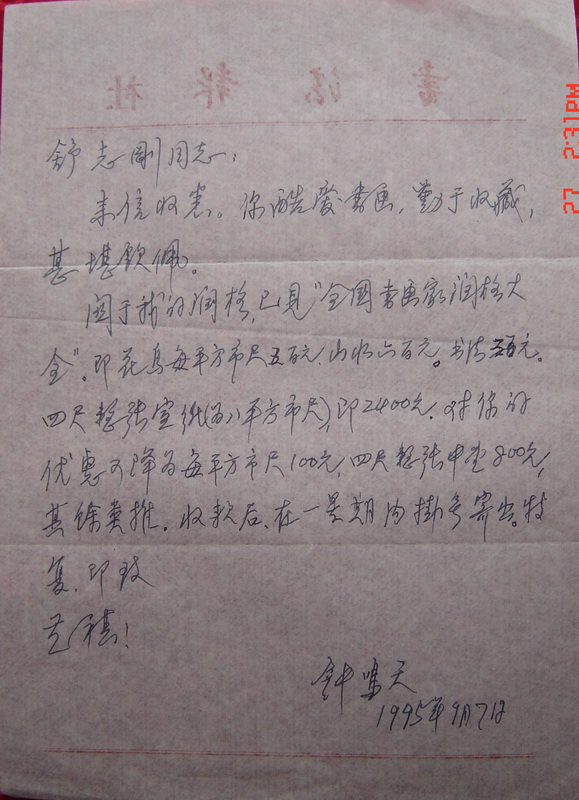 书法报社
舒志刚同志：
来信收悉。你酷爱书画，勤于收藏，
甚堪钦佩。
关于我的润格，已见"全国书画家润格大
全"。即花鸟每平方市尺五百元，山水六百元。书法三百元。
四尺整张宣纸(为八平方市尺)，即2400元。对你的
优惠可降为每平方市尺100元，四尺整张中堂800元，
其余类推。收款后，在一星期内挂号寄出。特
复，即致
艺祺！
钟鸣天
1995年9月7日
27 2:31PM